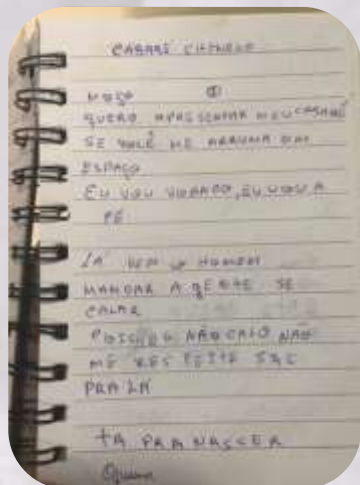 CABARÉ CHINELO
MOÇO ①
QUERO APRESENTAR MEU CABARÉ
SE VOCÊ ME ARRUMA UM
ESPAÇO
EU VOU VOANDO, EU VOU A
PÉ
LÁ VEM O HOMEM
MANDAR A GENTE SE
CALAR
POIS EU NÃO CALO NÃO
ME RESPEITE SAI
PRA LÁ
TA PRA NASCER